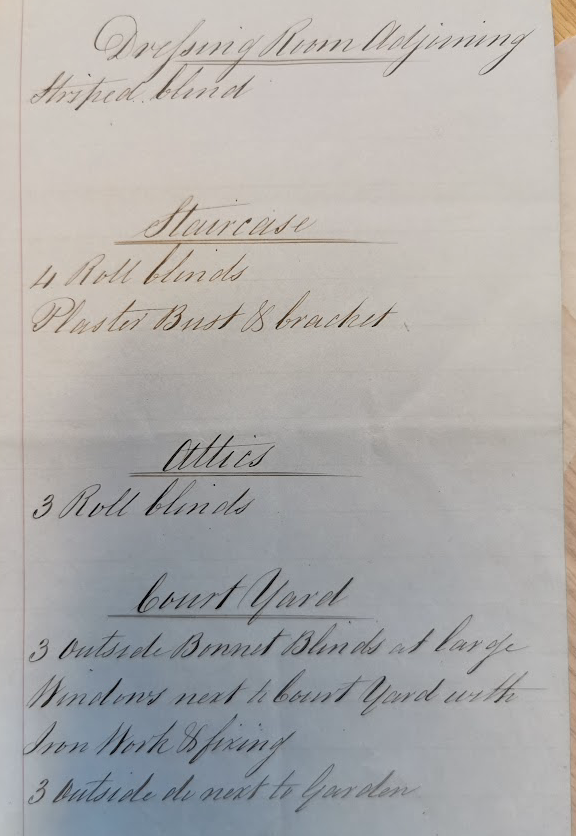 Dressing Room Adjoining
Striped blind
Staircase
4 Roll blinds
Plaster Bust & bracket
Attics
3 Roll blinds
Court Yard
3 Outside Bonnet Blinds at large
Windows next to Court Yard with
Iron Work & fixing
3 Outside do next to Garden